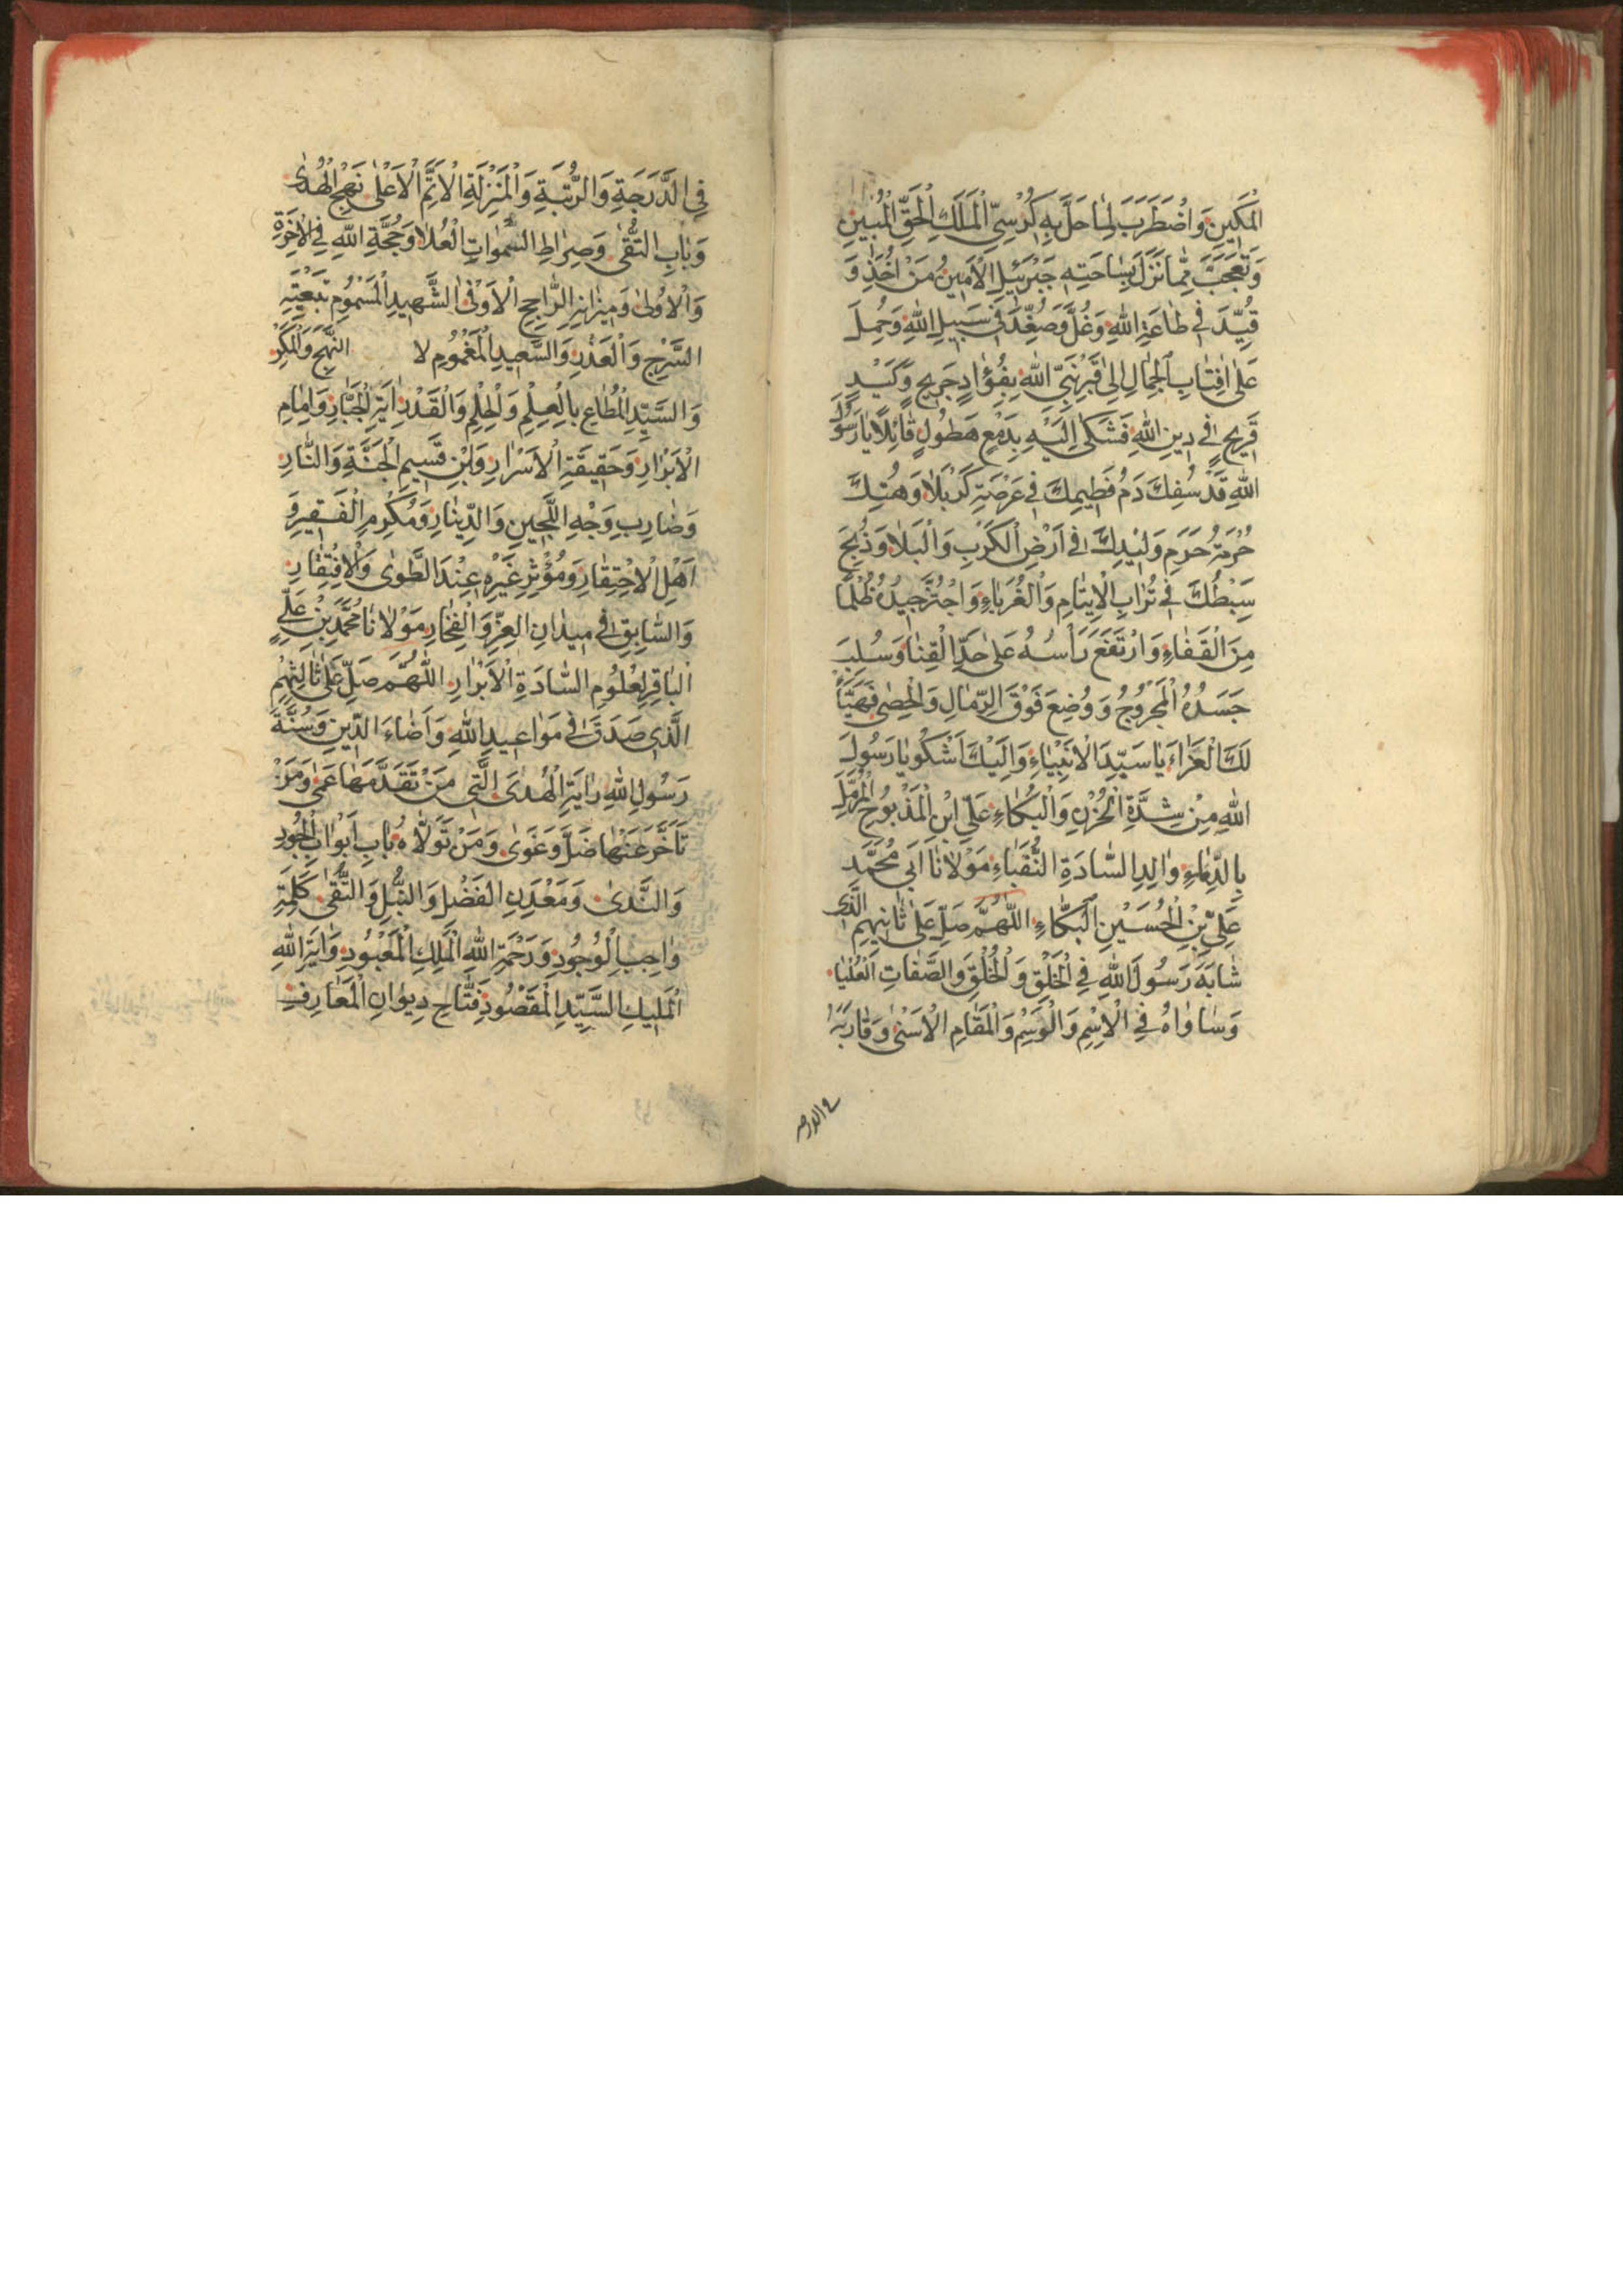 الْمَكِينِ وَاضْطَرَبَ لِمَا حَلَّ بِهِ كُرْسِيُّ الْمَلَكِ الْحَقِّ الْمُبِينِ
وَتَعَجَّبَ مِمَّا نَزَلَ بِسَاحَتِهِ جَبْرَئِيلُ الْاَمِينُ مَنْ اُخِذَ وَ
قُيِّدَ فِي طَاعَةِ اللهِ وَغُلَّ وَصُفِّدَ فِي سَبِيلِ اللهِ وَحُمِلَ
عَلٰى اَقْتَابِ الْجِمَالِ اِلٰى قَبْرِ نَبِيِّ اللهِ بِفُؤَادٍ جَرِيحٍ وَكَبِدٍ
قَرِيحٍ فِي دِينِ اللهِ فَشَكٰى اِلَيْهِ بِدَمْعٍ هَطُولٍ قَائِلًا يَا رَسُولَ
اللهِ قَدْ سُفِكَ دَمُ فَطِيمِكَ فِي عَرْصَةِ كَرْبَلَا وَهُتِكَ
حُرْمَةُ حَرَمِ وَلِيدِكَ فِي اَرْضِ الْكَرْبِ وَالْبَلَا وَذُبِحَ
سِبْطُكَ فِي تُرَابِ الْاَيْتَامِ وَالْغُرَبَاءِ وَاجْتُزَّ جِيدُهُ ظُلْمًا
مِنَ الْقَفَاءِ وَارْتَفَعَ رَاْسُهُ عَلٰى حَدِّ الْقَنَا وَسُلِبَ
جَسَدُهُ الْمَجْرُوحُ وَوُضِعَ فَوْقَ الرِّمَالِ وَالْحَصٰى فَهَنِيًّا
لَكَ الْعَزَاءَ يَا سَيِّدَ الْاَنْبِيَاءِ وَاِلَيْكَ اَشْكُو يَا رَسُولَ
اللهِ مِنْ شِدَّةِ الْحُزْنِ وَالْبُكَاءِ عَلِيِّ ابْنِ الْمَذْبُوحِ الْمُرَمَّلِ
بِالدِّمَاءِ وَالِدِ السَّادَةِ النُّقَبَاءِ مَوْلَانَا اَبِي مُحَمَّدٍ
عَلِيِّ بْنِ الْحُسَيْنِ الْبَكَّاءِ اَللّٰهُمَّ صَلِّ عَلٰى ثَانِيهِمِ الَّذِي
شَابَهَ رَسُولَ اللهِ فِي الْخَلْقِ وَالْخُلْقِ وَالصِّفَاتِ الْعُلْيَا
وَسَاوَاهُ فِي الْاِسْمِ وَالْوَسْمِ وَالْمَقَامِ الْاَسْنٰى وَقَارَبَهُ
فى الدرجه
فِي الدَّرَجَةِ وَالرُّتْبَةِ وَالْمَنْزِلَةِ الْاَتَمِّ الْاَعْلٰى نَهْجِ الْهُدٰى
وَبَابِ التُّقٰى وَصِرَاطِ السَّمٰوَاتِ الْعُلَا وَحُجَّةِ اللهِ فِي الْاٰخِرَةِ
وَالْاُولٰى وَمِيزَانِهِ الرَّاجِحِ الْاَوْفٰى الشَّهِيدِ الْمَسْمُومِ
السَّرْجِ وَالْغَدْرِ وَالسَّعِيدِ الْمَغْمُومِ لا النَّهْجِ وَالْمَكْرِ
وَالسَّيِّدِ الْمُطَاعِ بِالْعِلْمِ وَالْحِلْمِ وَالْقَدْرِ اٰيَةِ الْجَبَّارِ وَاِمَامِ
الْاَبْرَارِ وَحَقِيقَةِ الْاَسْرَارِ وَابْنِ قَسِيمِ الْجَنَّةِ وَالنَّارِ
وَضَارِبِ وَجْهِ اللُّجَيْنِ وَالدِّينَارِ وَمُكْرِمِ الْفَقِيرِ وَ
اَهْلِ الْاِحْتِقَارِ وَمُؤْثِرِ غَيْرِهِ عِنْدَ الطَّوٰى وَالْاِفْتِقَارِ
وَالسَّابِقِ فِي مَيْدَانِ الْعِزِّ وَالْفَخَارِ مَوْلَانَا مُحَمَّدِ بْنِ عَلِيٍّ
الْبَاقِرِ لِعُلُومِ السَّادَةِ الْاَبْرَارِ اَللّٰهُمَّ صَلِّ عَلٰى ثَالِثِهِمُ
الَّذِي صَدَقَ فِي مَوَاعِيدِ اللهِ وَاَضَاءَ الدِّينِ وَسُنَّةَ
رَسُولِ اللهِ رَايَةِ الْهُدٰى الَّتِي مَنْ تَقَدَّمَهَا عَمٰى وَمَنْ
تَاَخَّرَ عَنْهَا ضَلَّ وَغَوٰى وَمَنْ تَوَلَّاهُ بَابِ اَبْوَابِ الْجُودِ
وَالنَّدٰى وَمَعْدِنِ الْفَضْلِ وَالنُّبْلِ وَالتُّقٰى كَلِمَةِ
وَاجِبِ الْوُجُودِ وَرَحْمَةِ اللهِ الْمَلِكِ الْمَعْبُودِ وَاٰيَةِ اللهِ
الْمَلِيكِ السَّيِّدِ الْمَقْصُودِ فَتَّاحِ دِيوَانِ الْمَعَارِفِ